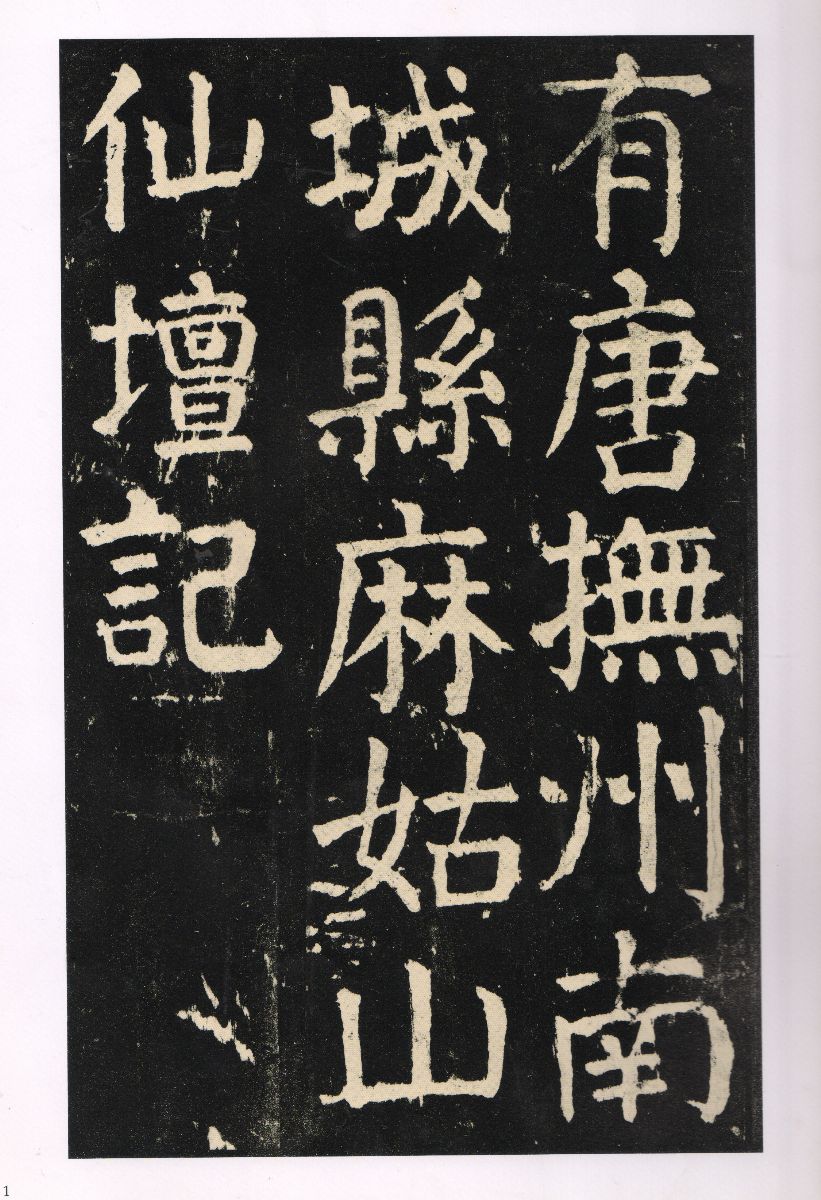 有唐撫州南
城縣麻姑山
仙壇記
1